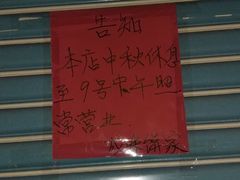 告知
本店中秋休息
至9号中午照
常营业